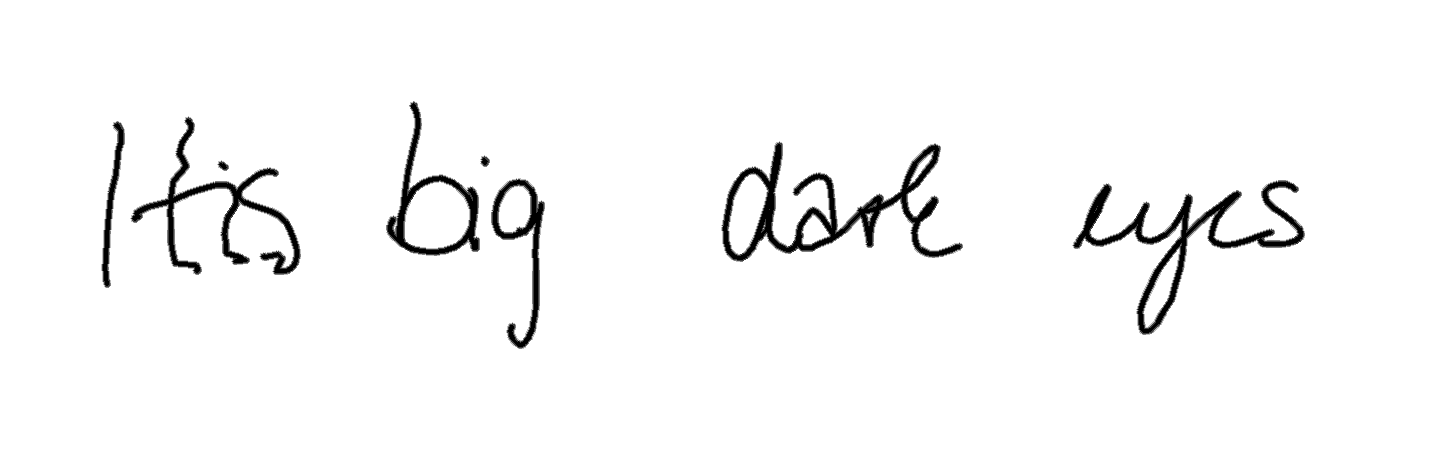 His big dark eyes